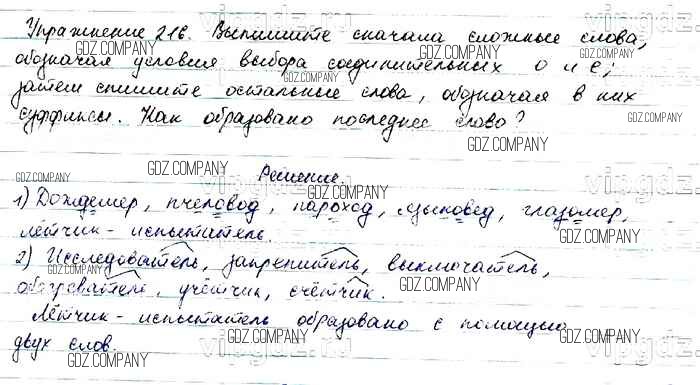 Упражнение 216. Выпишите сначала сложные слова,
обозначая условия выбора соединительных о и е;
затем спишите остальные слова, обозначая в них
суффиксы. Как образовано последнее слово?
Решение.
1) Дождемер, пчеловод, пароход, языковед, глазомер,
лётчик-испытатель.
2) Исследователь, закрепитель, выключатель,
обогреватель, учётчик, счётчик.
Лётчик-испытатель образовано с помощью
двух слов.
GDZ.COMPANY
vipgdz.ru